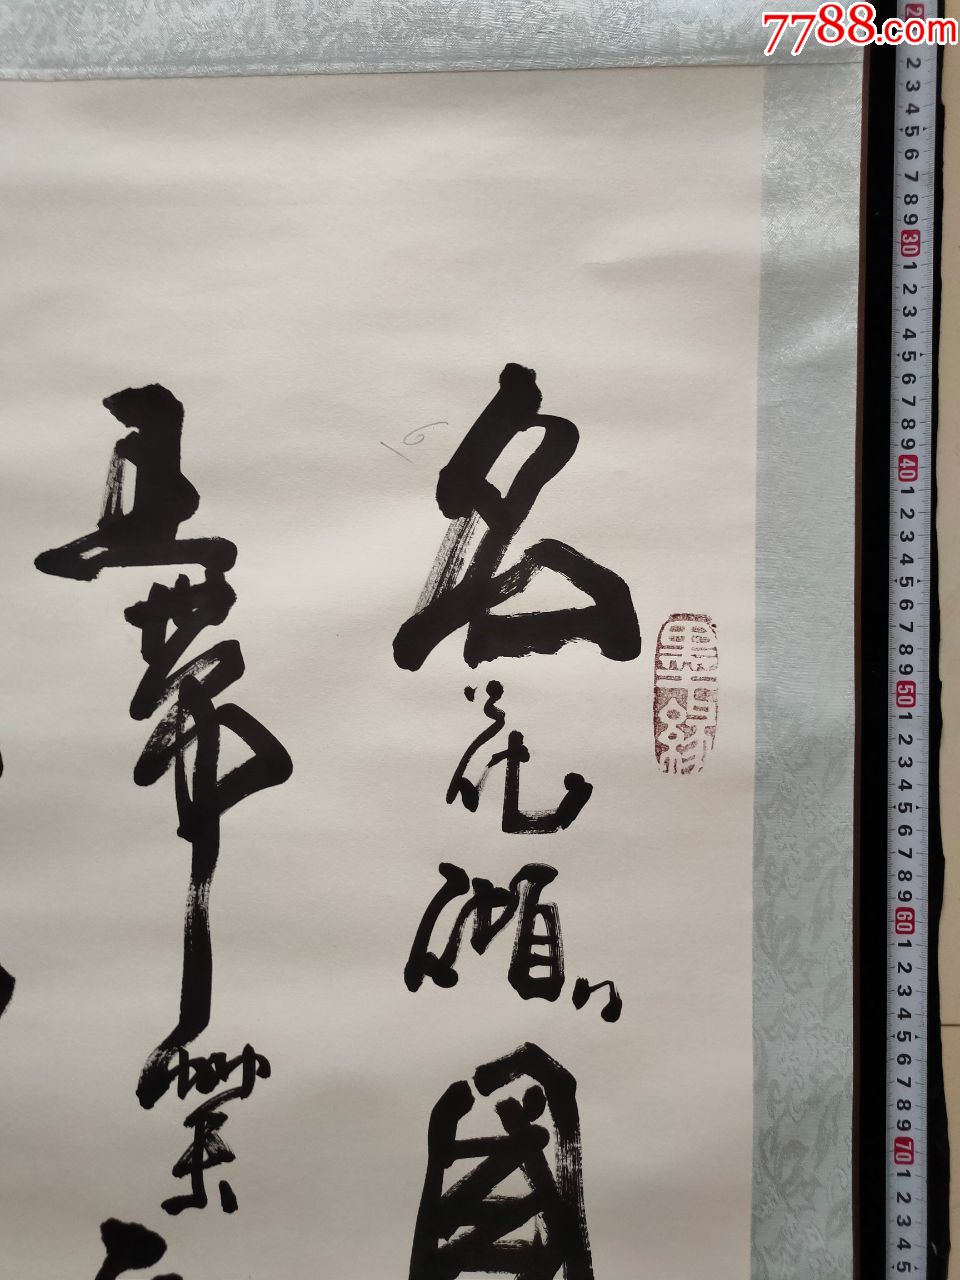 7788.com
名花傾國
王帶笑
16
2 3 4 5 6 7 8 9 30 1 2 3 4 5 6 7 8 9 40 1 2 3 4 5 6 7 8 9 50 1 2 3 4 5 6 7 8 9 60 1 2 3 4 5 6 7 8 9 70 1 2 3 4 5